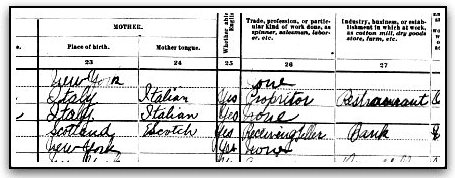 MOTHER.
Whether able
Englis
Trade, profession, or partic-
ular kind of work done, as
spinner, salesman, labor-
er, etc.
Industry, business, or estab-
lishment in which at work,
as cotton mill, dry goods
store, farm, etc.
e.
Place of birth.
Mother tongue.
23 24 25 26 27
New York
Italy Italian Yes Propritor Restraurant
Italy Italian Yes None
Scotland Scotch Yes Receiving Teller Bank
New York Yes None